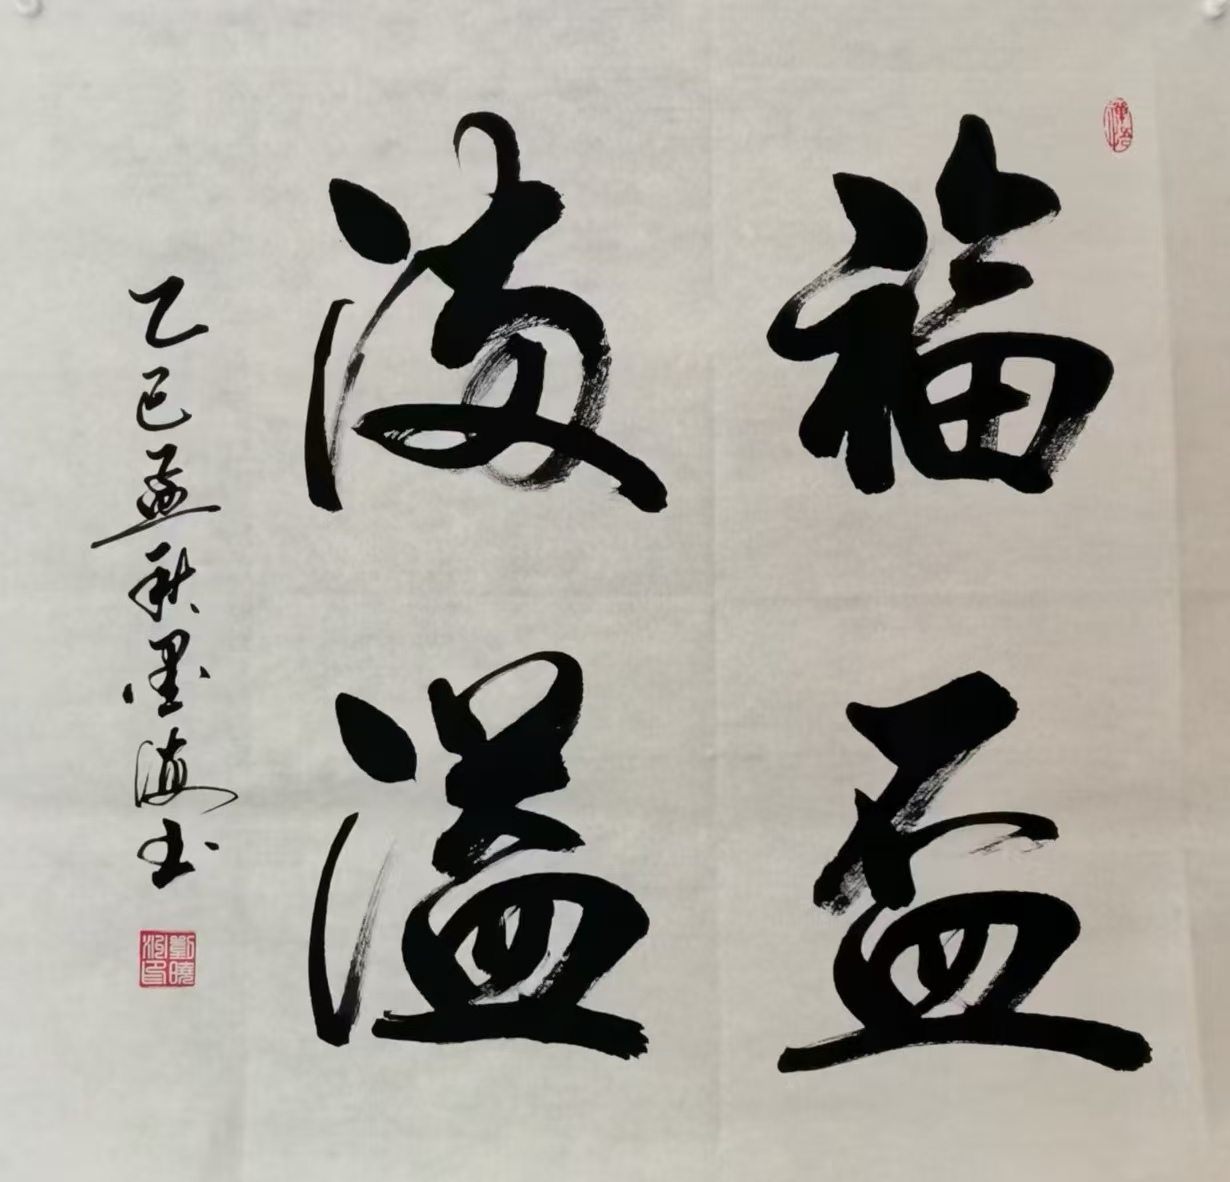 福盈
满溢
乙巳孟秋墨海书